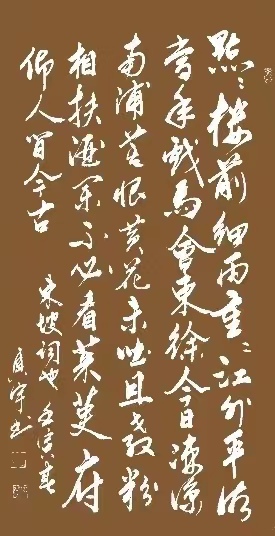 點〻樓前細雨重〻江外平湖
當年戲馬會東徐今日凄凉
南浦莫恨黄花未吐且教粉
相扶酒闌不必看茱萸府
仰人間今古
東坡詞也 壬寅春
宇书